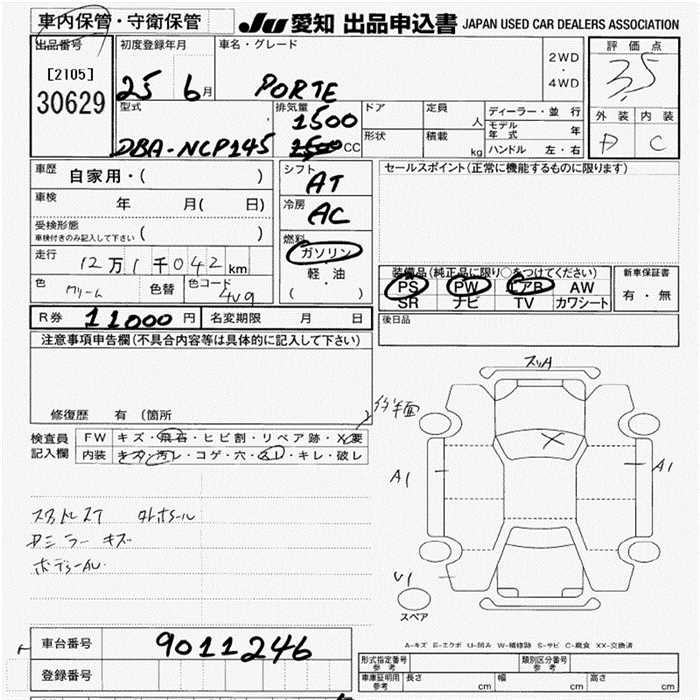 車内保管・守衛保管 JU 愛知 出品申込書 JAPAN USED CAR DEALERS ASSOCIATION
出品番号 初度登録年月 車名・グレード 2WD・4WD 評価点
[2105] 25 6月 PORTE 3.5
30629
型式 排気量 ドア 定員 人 ディーラー・並行 外装 内装
1500 モデル年式 年
DBA-NCP145 1500 CC 形状 積載 kg ハンドル 左・右 D C
車歴 自家用・( ) シフト AT セールスポイント(正常に機能するものに限ります)
車検 年 月( 日) 冷房 AC
受検形態 車検付きのみ記入して下さい ( ) 燃料
走行 12万1千042km ガソリン・軽・油 ( )
装備品(純正品に限り○をつけてください) 新車保証書
色 クリーム 色替 色コード 4V9 PS PW エアB AW 有・無
SR ナビ TV カワシート
R券 11000円 名変期限 月 日 後日品
注意事項申告欄(不具合内容等は具体的に記入して下さい)
修復歴 有 (箇所
検査員記入欄 FW キズ・飛石・ヒビ割・リペア跡・X要
内装 キズ・汚レ・コゲ・穴・スレ・キレ・破レ
A1 A1
ボディーAU
U1
スペア
A-キズ E-エクボ U-凹み W-補修跡 S-サビ C-腐食 XX-交換済
車台番号 9011246
登録番号
形式指定番号 参考 類別区分番号 参考
車庫証明用 参考 長さ cm 幅 cm 高さ cm